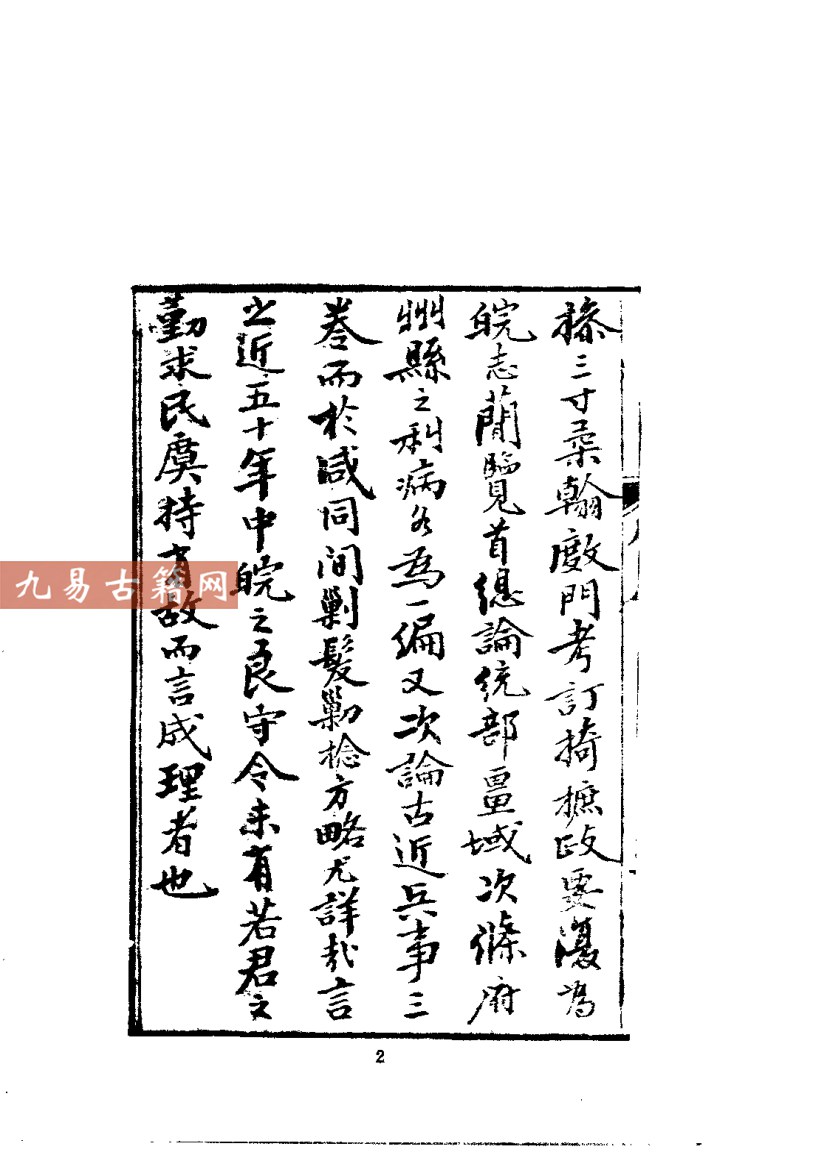 三寸柔翰敭門考訂掎摭政要瀀為
皖志蕑覽首總論統部畺域次條府
州縣之利病各為一編又次論古近兵事三
卷而於咸同間剿髮勦捻方略尤詳哉言
之近五十年中皖之良守令未有若君之
勤求民虞持有故而言成理者也
九易古籍网
2